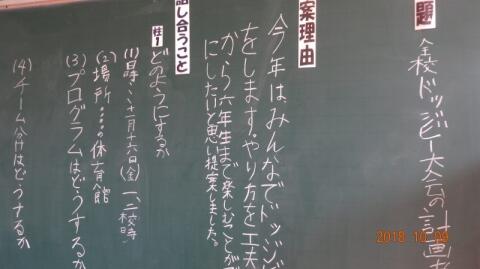 題
全校ドッジビー大会の計画を
案理由
今年はみんなでドッジビ
をします。やり方を工夫
から六年生まで楽しむことがで
にしたいと思い提案しました。
話し合うこと
柱1
どのようにするか
(1)日時…十一月十六日(金)一、二校時
(2)場所…体育館
(3)プログラムはどうするか
(4)チーム分けはどうするか
2018 10 09